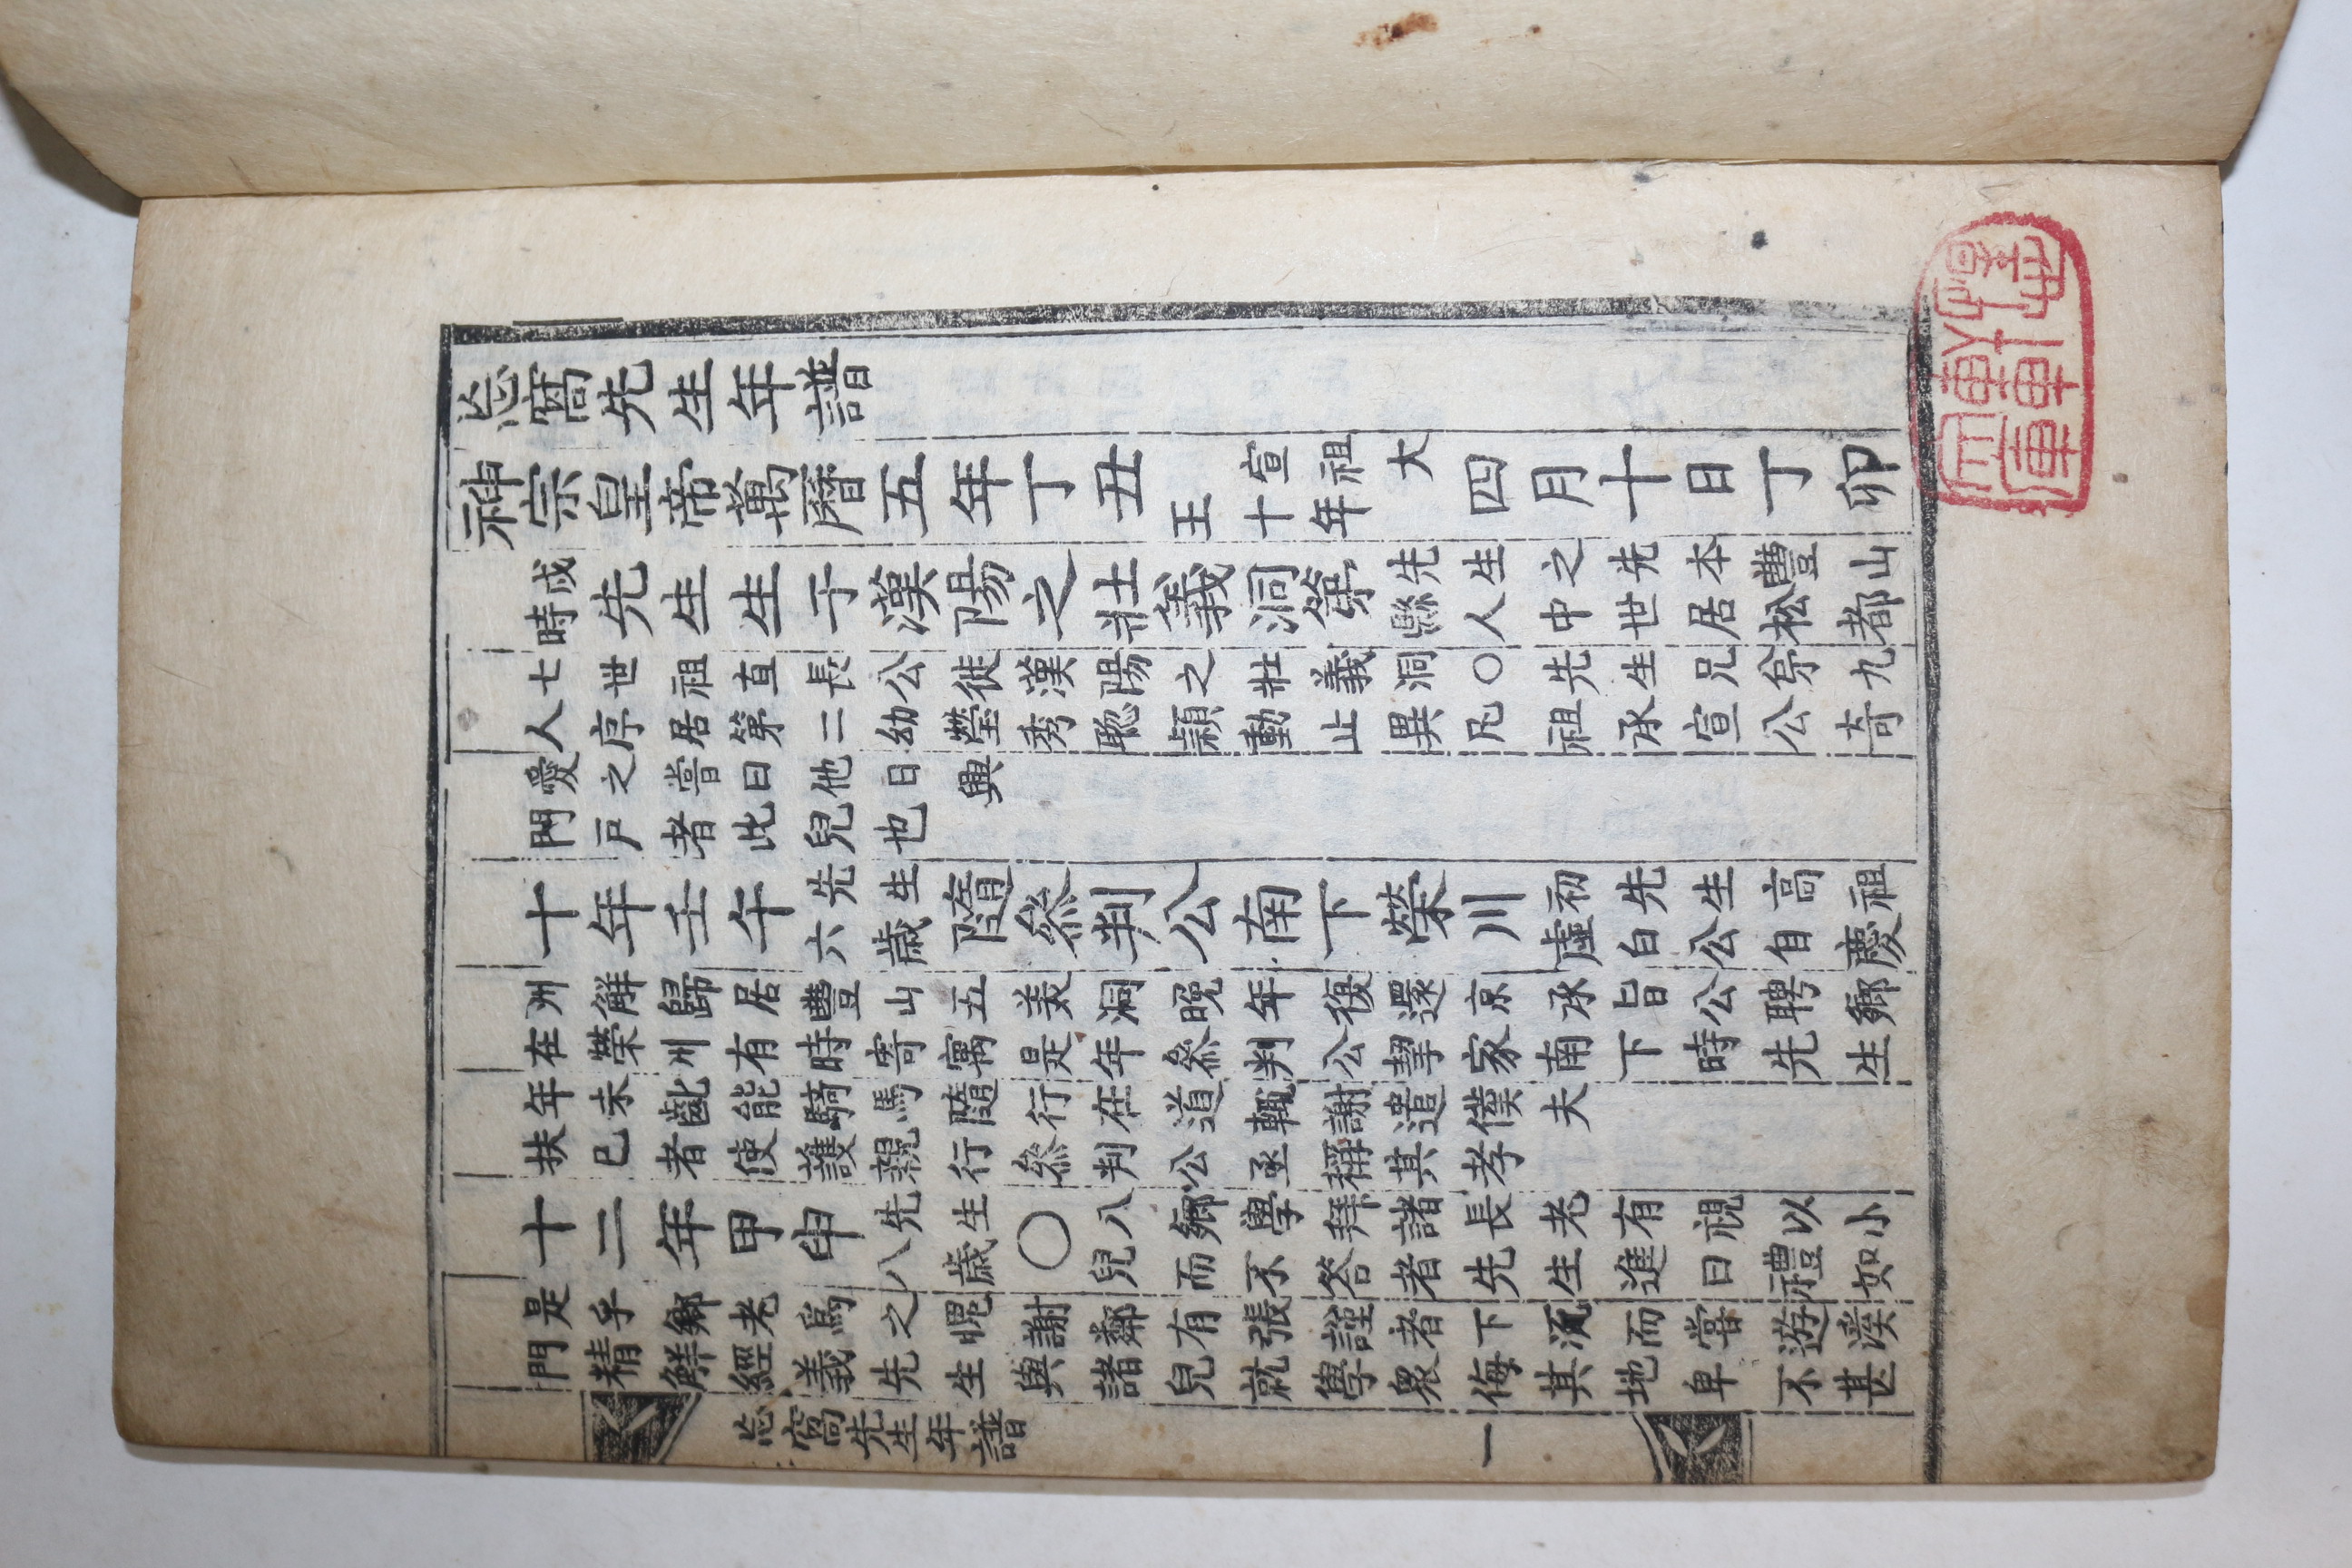 㤀窩先生年譜
神宗皇帝萬曆五年丁丑宣祖大王十年四月十日丁卯
戌時先生生于漢陽之壯義洞第先生之先本豐山縣人中世居松都
七世祖直長公徙漢陽之壯義洞○先生兄弟九
人序居第二幼瑩秀聰穎動止異凡祖承宣公奇
愛之嘗曰他日興
門戶者此兒也
十年壬午先生六歲隨參判公南下榮川初先生高祖虛白公自慶
州解歸居豐山五美洞晚年復還京承旨公聘鄉
在榮川有時寄寓是年參判公挈家南下時先生
年未齔能騎馬隨行在道輒謝遣僕夫
扶已者使護親行參判公亟稱其孝
十二年甲申先生八歲○八鄉學拜諸長老有視以小兒而不答者先生進曰禮如
是乎鄉老爲之愧謝鄰有張謹者下流而嘗遊溪
門精解經義先生與諸兒就學衆侮其地卑不甚
㤀窩先生年譜 一